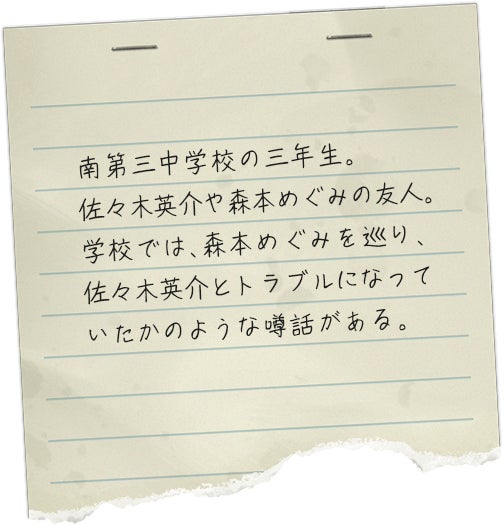 南第三中学校の三年生。
佐々木英介や森本めぐみの友人。
学校では、森本めぐみを巡り、
佐々木英介とトラブルになって
いたかのような噂話がある。